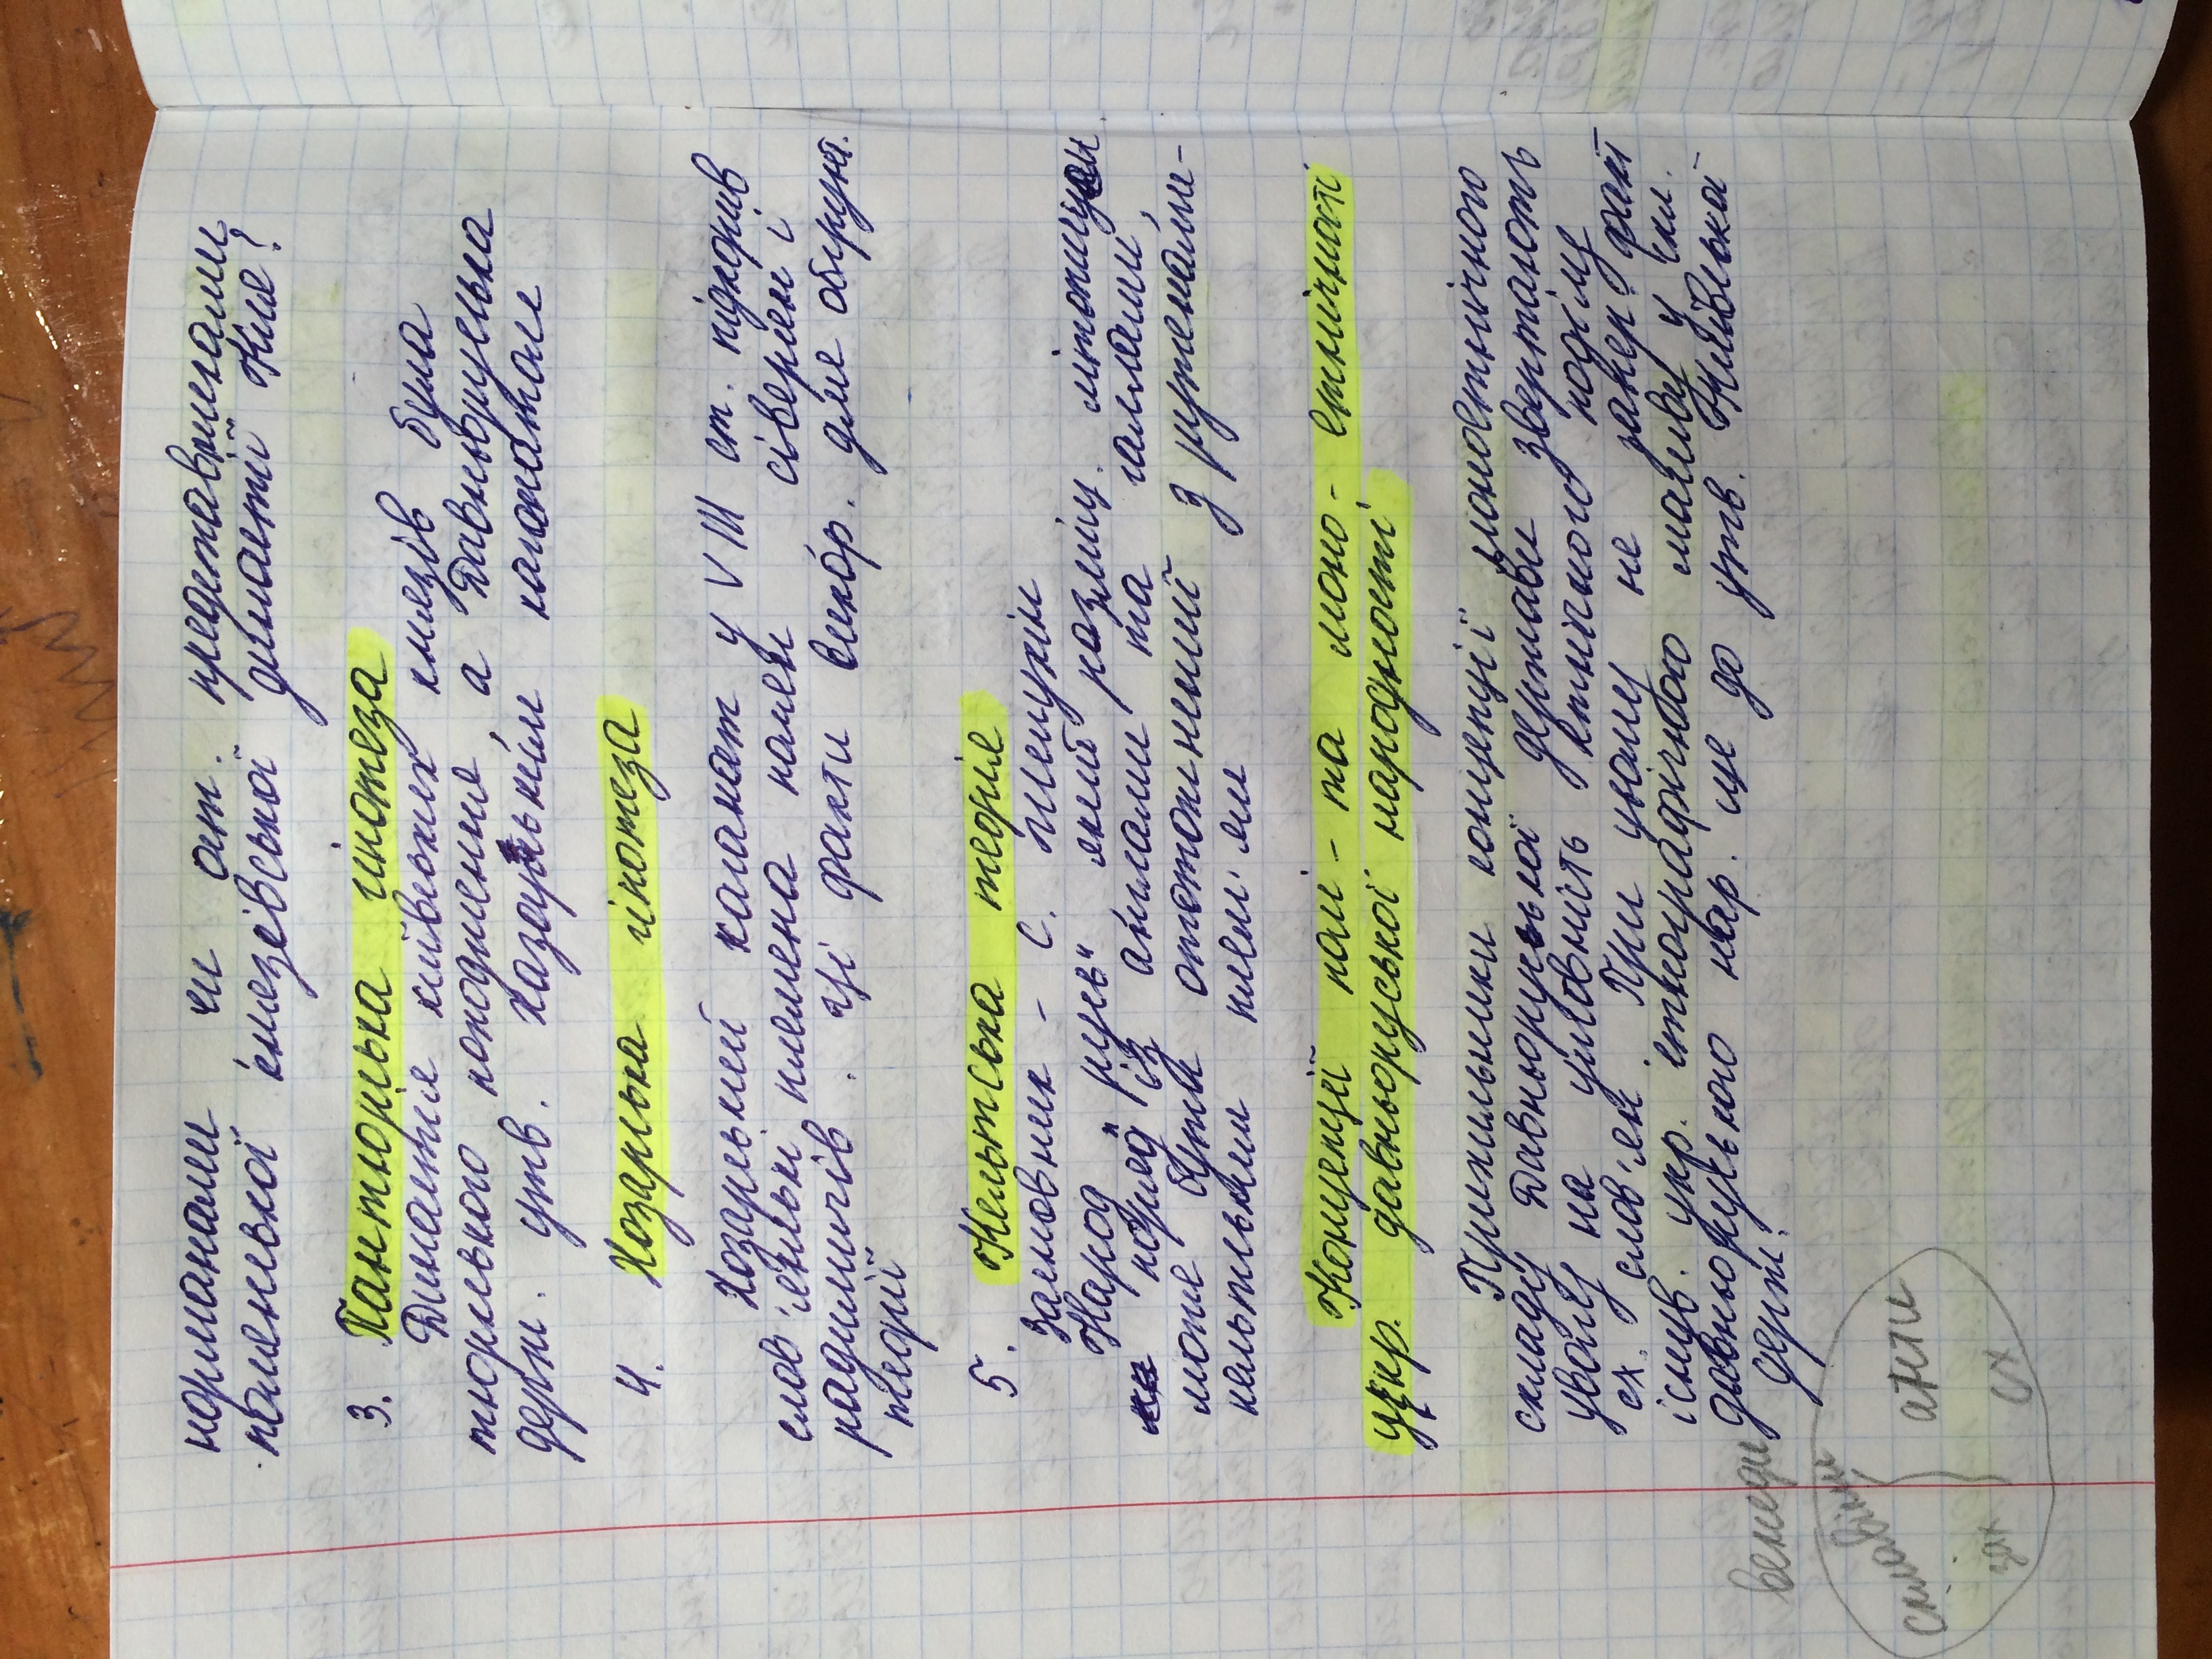 норманами чи ост. представниками
полянської князівської династії Кия?
3. Пантюрська гіпотеза
Династія київських князів була
тюркського походження, а Давньоруська
держ. утв. Хазарським каганатом
4. Хозарська гіпотеза
Хозарський каганат у VIII ст. підкорив
слов'янські племена полян, сіверян і
радимичів. Ці факти викор. для обґрунт.
теорії
5. Кельтська теорія
Засновник - С. Шелухін
Народ „русь", який розміщ. літописцем
поряд із англами та галлами,
може бути ототожнений з рутенами-
кельтським плем'ям
Концепції полі- та моно-етнічності
укр. давньоруської народності
Прихильники концепції моноетнічного
складу Давньоруської держави звертають
увагу на умовність етнічного поділу
сх. слов'ян. При цьому не запер. факт
існув. укр. етнографічного масиву у скл.
давньоруського нар. ще до утв. Київської
держ.
венеди
склавіни анти
зах сх